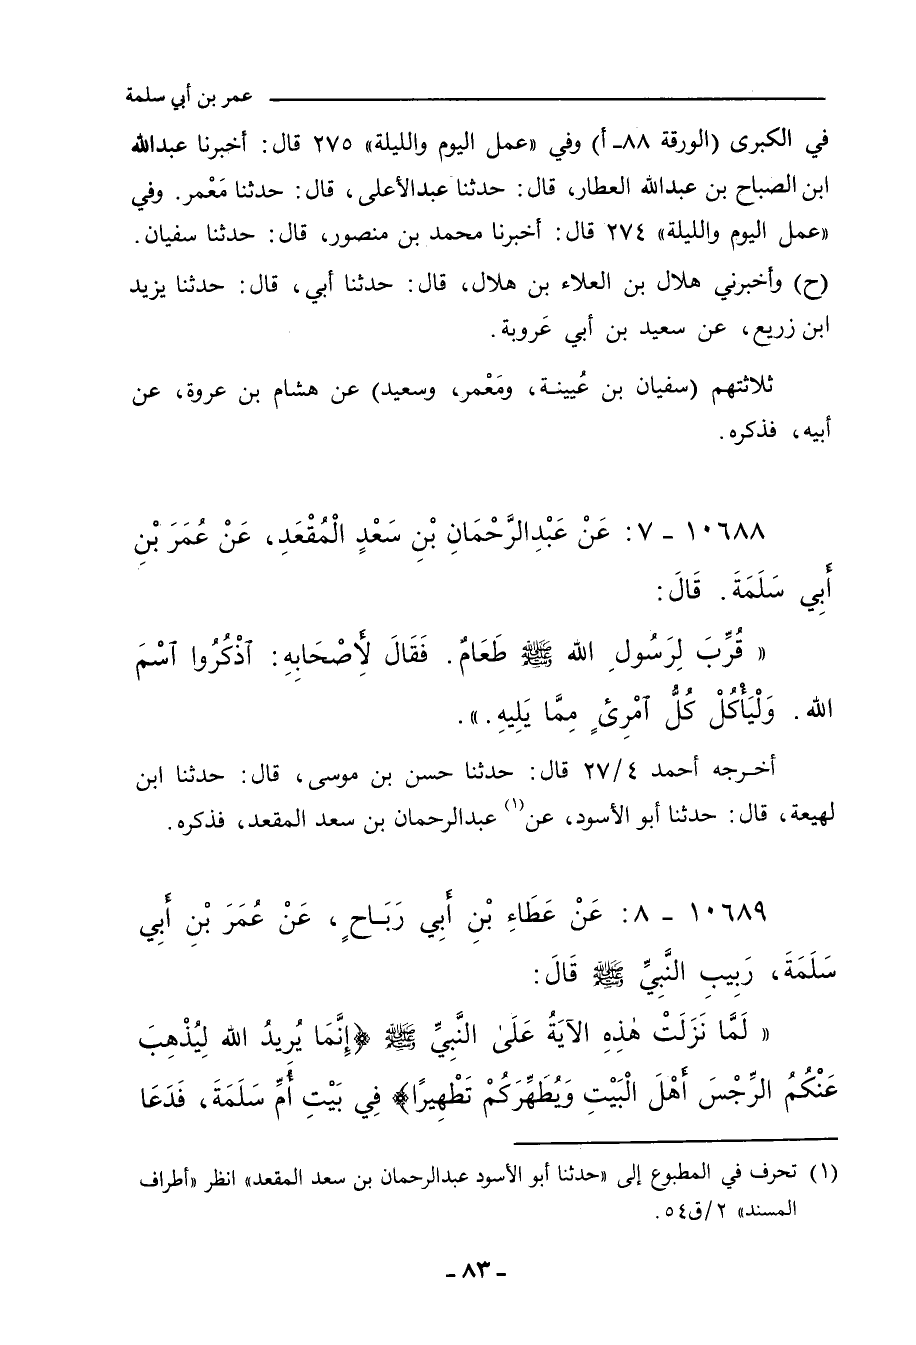 عمر بن أبي سلمة
في الكبرى (الورقة ٨٨ـ أ) وفي «عمل اليوم والليلة» ٢٧٥ قال: أخبرنا عبدالله
ابن الصباح بن عبدالله العطار، قال: حدثنا عبدالأعلى، قال: حدثنا مَعْمر. وفي
«عمل اليوم والليلة» ٢٧٤ قال: أخبرنا محمد بن منصور، قال: حدثنا سفيان.
(ح) وأخبرني هلال بن العلاء بن هلال، قال: حدثنا أبي، قال: حدثنا يزيد
ابن زريع، عن سعيد بن أبي عَروبة.
ثلاثتهم (سفيان بن عُيينـة، ومَعْمر، وسعيد) عن هشام بن عروة، عن
أبيه، فذكره.
١٠٦٨٨ ـ ٧: عَنْ عَبْدِالرَّحْمَانِ بْنِ سَعْدٍ الْمُقْعَدِ، عَنْ عُمَرَ بْنِ
أَبِي سَلَمَةَ. قَالَ:
« قُرِّبَ لِرَسُولِ الله ﷺ طَعَامٌ. فَقَالَ لِأَصْحَابِهِ: ٱذْكُرُوا ٱسْمَ
الله. وَلْيَأْكُلْ كُلُّ ٱمْرِئٍ مِمَّا يَلِيهِ.».
أخـرجه أحمد ٢٧/٤ قال: حدثنا حسن بن موسى، قال: حدثنا ابن
لهيعة، قال: حدثنا أبو الأسود، عن(١) عبدالرحمان بن سعد المقعد، فذكره.
١٠٦٨٩ ـ ٨: عَنْ عَطَاءِ بْنِ أَبِي رَبَـاحٍ، عَنْ عُمَرَ بْنِ أَبِي
سَلَمَةَ، رَبِيبِ النَّبِيِّ ﷺ قَالَ:
« لَمَّا نَزَلَتْ هٰذِهِ الآيَةُ عَلَىٰ النَّبِيِّ ﷺ ﴿إِنَّمَا يُرِيدُ الله لِيُذْهِبَ
عَنْكُمُ الرِّجْسَ أَهْلَ الْبَيْتِ وَيُطَهِّرَكُمْ تَطْهِيرًا﴾ فِي بَيْتِ أُمِّ سَلَمَةَ، فَدَعَا
(١) تحرف في المطبوع إلى «حدثنا أبو الأسود عبدالرحمان بن سعد المقعد» انظر «أطراف
المسند» ٢/ق٥٤.
ـ ٨٣ ـ